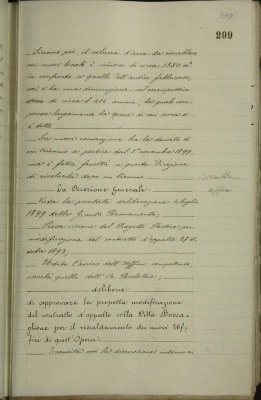 299
299
Siccome poi il volume d'aria da riscaldare
nei nuovi locali è minore di circa 1380 m³
in confronto a quello dell'antico fabbricato,
così si ha una diminuzione nel corrispettivo
annuo di circa L. 414 annue, la quale com-
pensa largamente la spesa di cui sopra si
è detto.
La nuova convenzione ha la durata di
un triennio a partire dal 1° novembre 1899,
ma è fatta facoltà a questa Direzione
di risolverla dopo un biennio.
La Direzione Generale
Vista la precitata deliberazione 4 luglio
1899 della Giunta Permanente;
Presa visione del Progetto Pratico per
modificazione del contratto d'appalto 27 ot-
tobre 1893;
Udito l'avviso dell'Ufficio competente
nonchè quello dell'
delibera
di approvare la proposta modificazione
del contratto d'appalto colla Ditta Besca-
glione per il riscaldamento dei nuovi Uf-
fizi di quest'Opera.
Esaurita così la discussione intorno ai